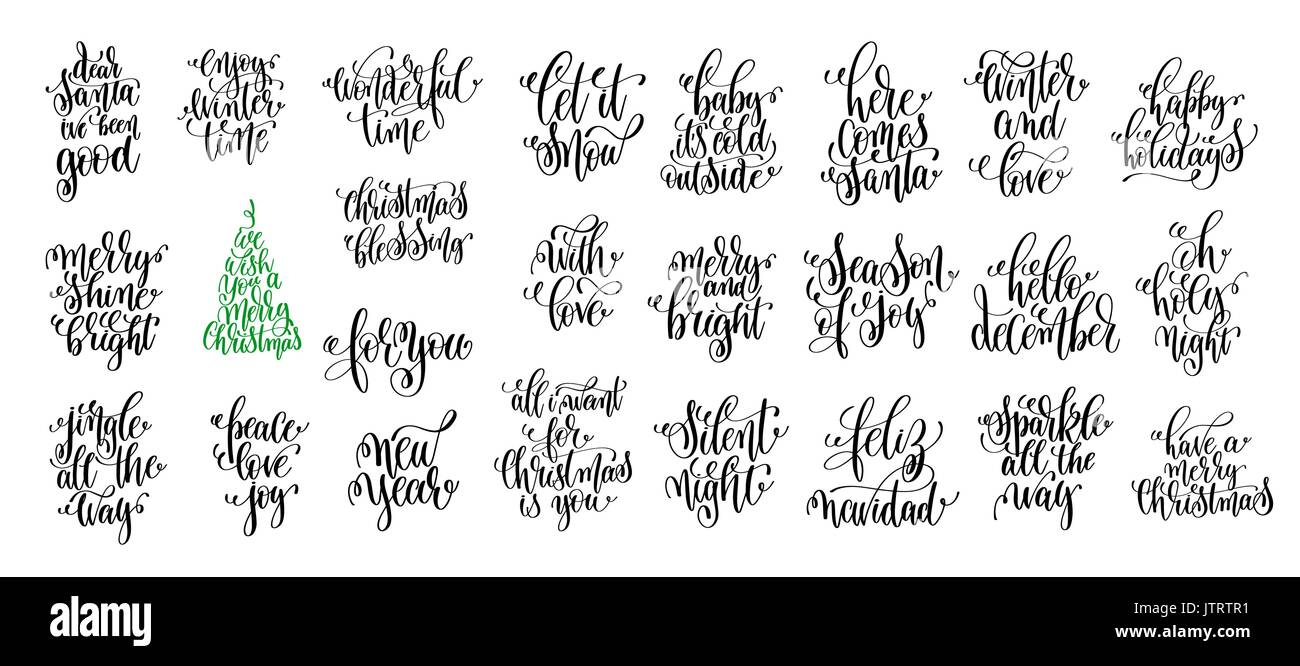 dear
Santa
i've been
good
enjoy
winter
time
wonderful
time
let it
snow
baby
it's cold
outside
here
comes
santa
winter
and
love
happy
holidays
merry
shine
bright
we
wish
you a
merry
Christmas
christmas
blessing
for you
with
love
merry
and
bright
season
of joy
hello
december
oh
holy
night
jingle
all the
way
peace
love
joy
new
year
all i want
for
christmas
is you
silent
night
feliz
navidad
sparkle
all the
way
have a
merry
christmas
alamy
Image ID: JTRTR1
www.alamy.com